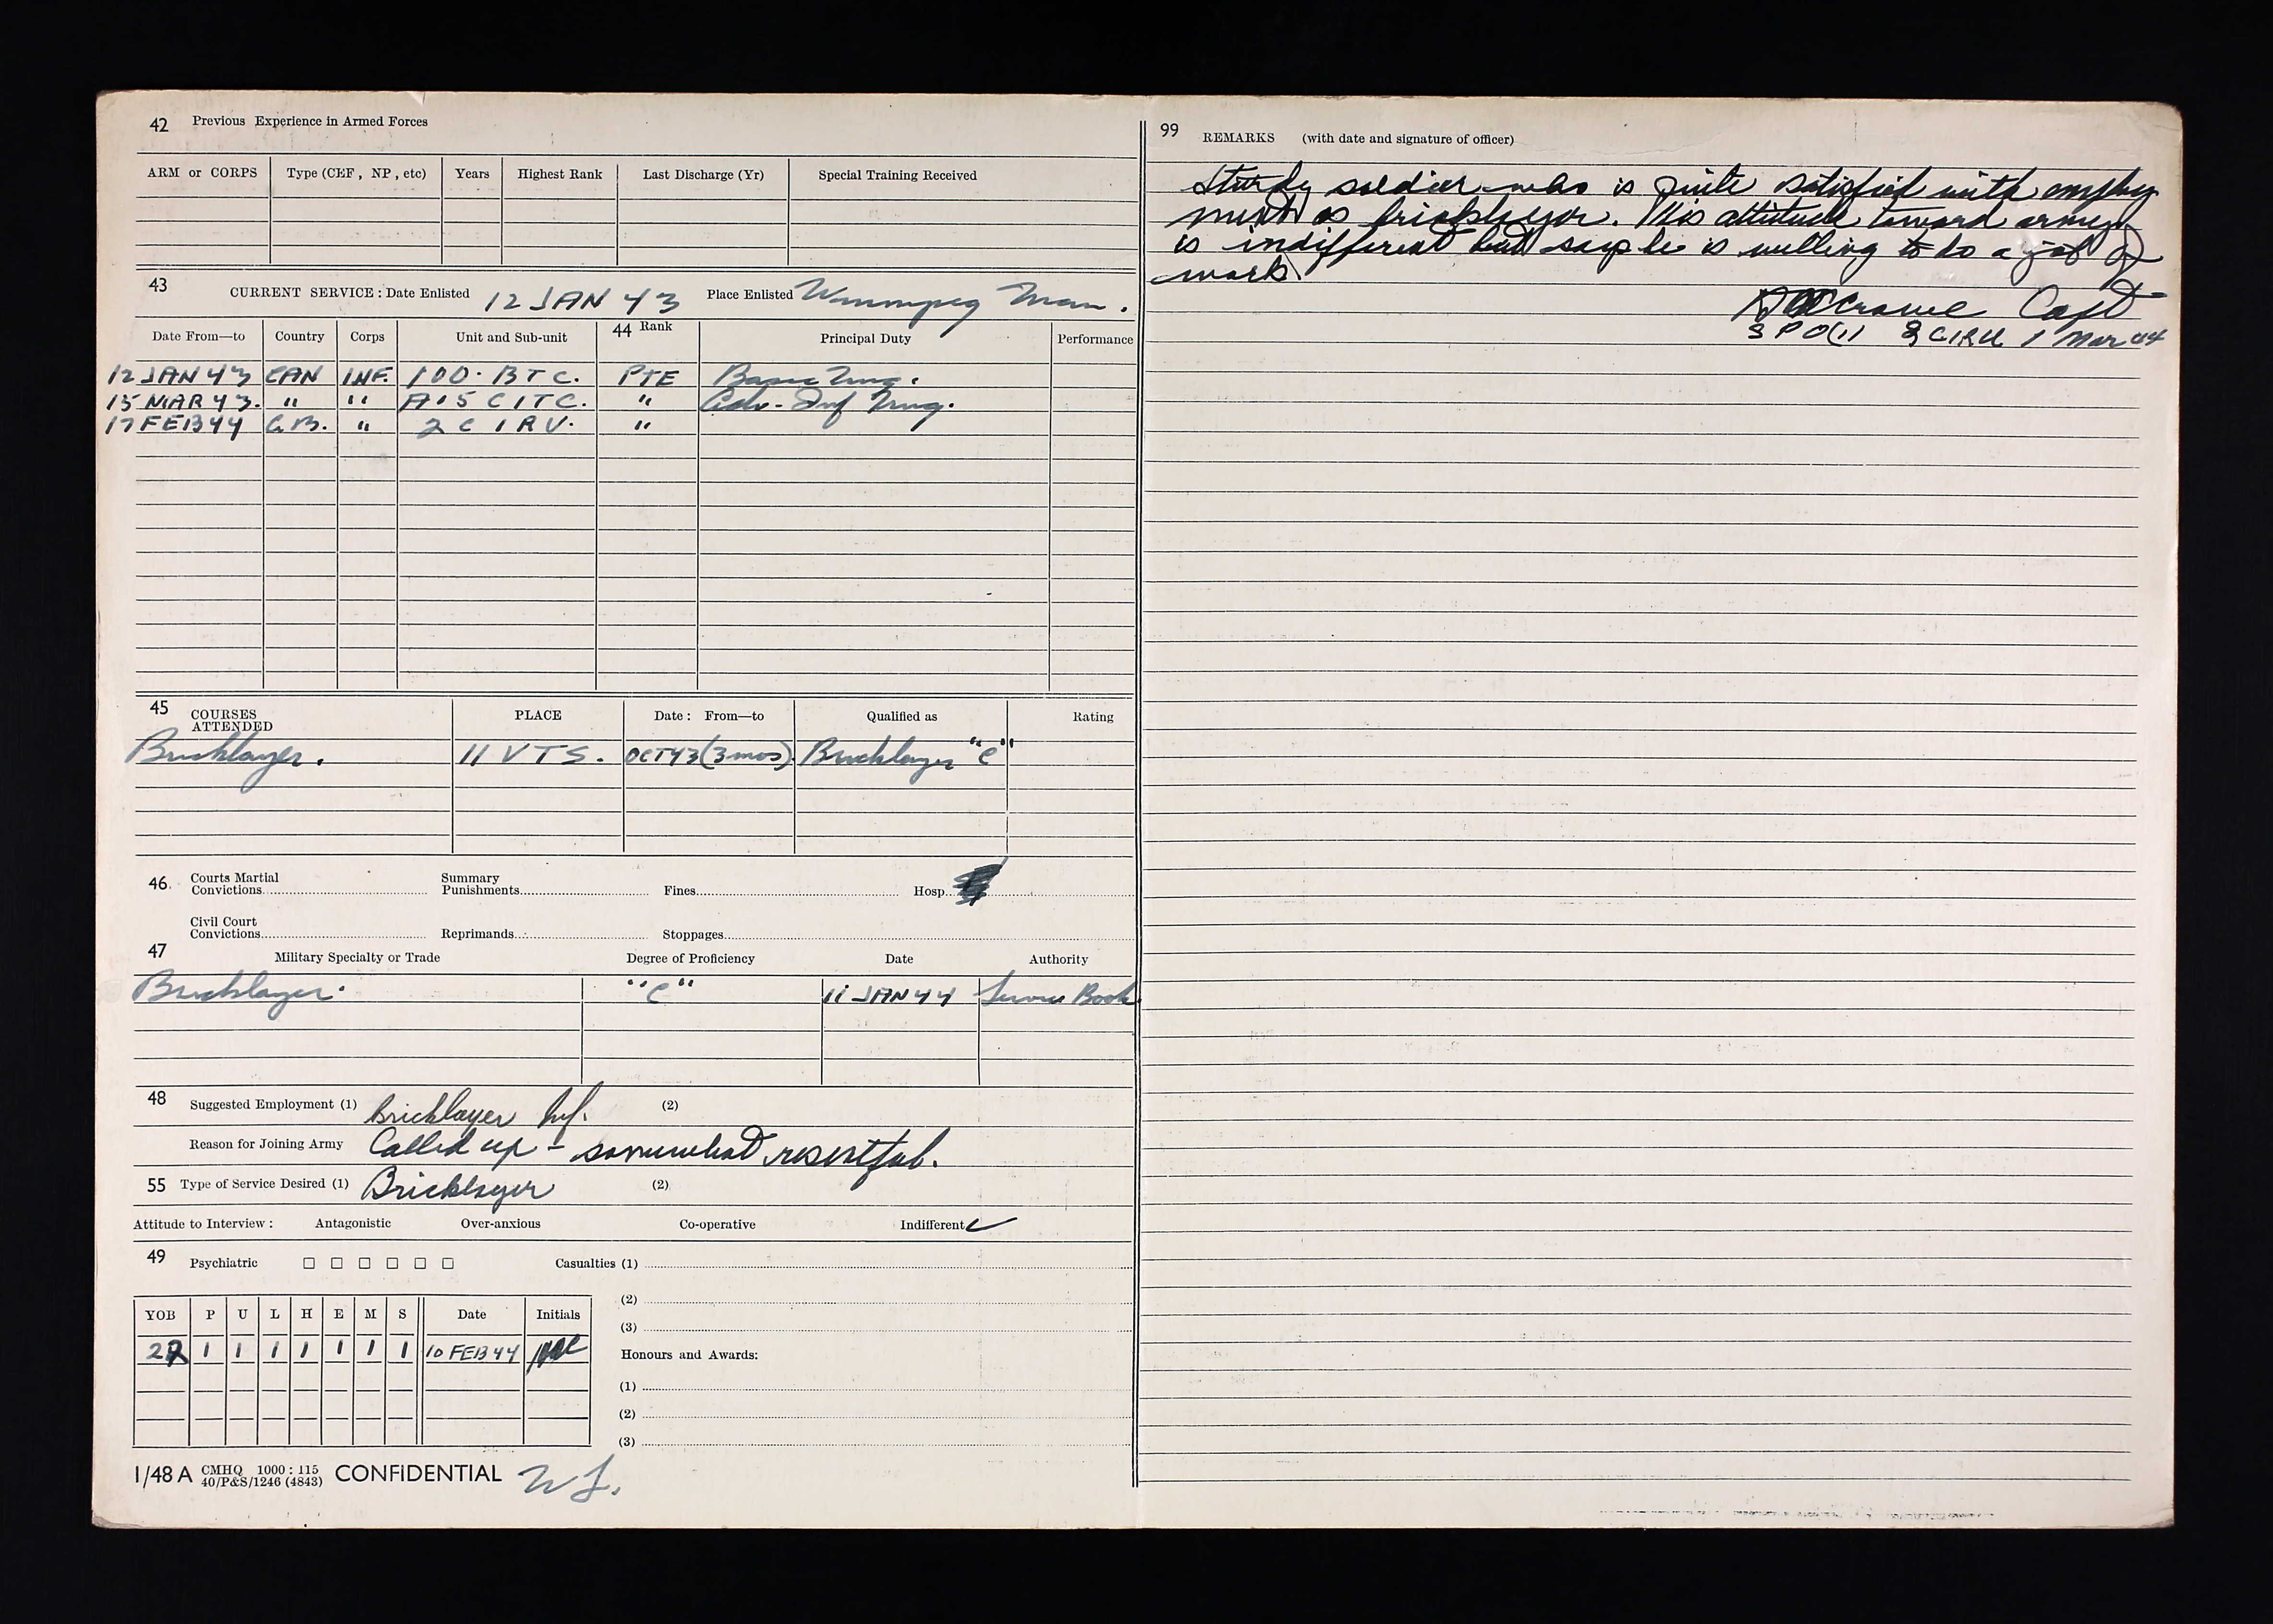 42 Previous Experience in Armed Forces
ARM or CORPS Type (CEF, NP, etc) Years Highest Rank Last Discharge (Yr) Special Training Received
43 CURRENT SERVICE: Date Enlisted 12 JAN 43 Place Enlisted Winnipeg Man.
Date From—to Country Corps Unit and Sub-unit 44 Rank Principal Duty Performance
12 JAN 43 CAN INF. 100. BTC. PTE Basic Trng.
15 MAR 43. " " A15 CITC. " Adv. Inf Trng.
17 FEB 44 G.B. " 2 C I R U. "
45 COURSES ATTENDED PLACE Date: From—to Qualified as Rating
Bricklayer. 11 V T S. OCT 43 (3 mos). Bricklayer "C"
46. Courts Martial Convictions Summary Punishments Fines Hosp
Civil Court Convictions Reprimands Stoppages
47 Military Specialty or Trade Degree of Proficiency Date Authority
Bricklayer. "C" 11 JAN 44 Service Book.
48 Suggested Employment (1) Bricklayer Inf. (2)
Reason for Joining Army Called up - somewhat resentful.
55 Type of Service Desired (1) Bricklayer (2)
Attitude to Interview: Antagonistic Over-anxious Co-operative Indifferent
49 Psychiatric Casualties (1)
(2)
(3)
YOB P U L H E M S Date Initials
22 1 1 1 1 1 1 1 10 FEB 44
Honours and Awards:
(1)
(2)
(3)
1/48 A CMHQ 1000 : 115 40/P&S/1246 (4843) CONFIDENTIAL
99 REMARKS (with date and signature of officer)
Sturdy soldier who is quite satisfied with employ
ment as bricklayer. His attitude toward army
is indifferent but says he is willing to do a job of
work.
Crowe Capt
1 Mar 44